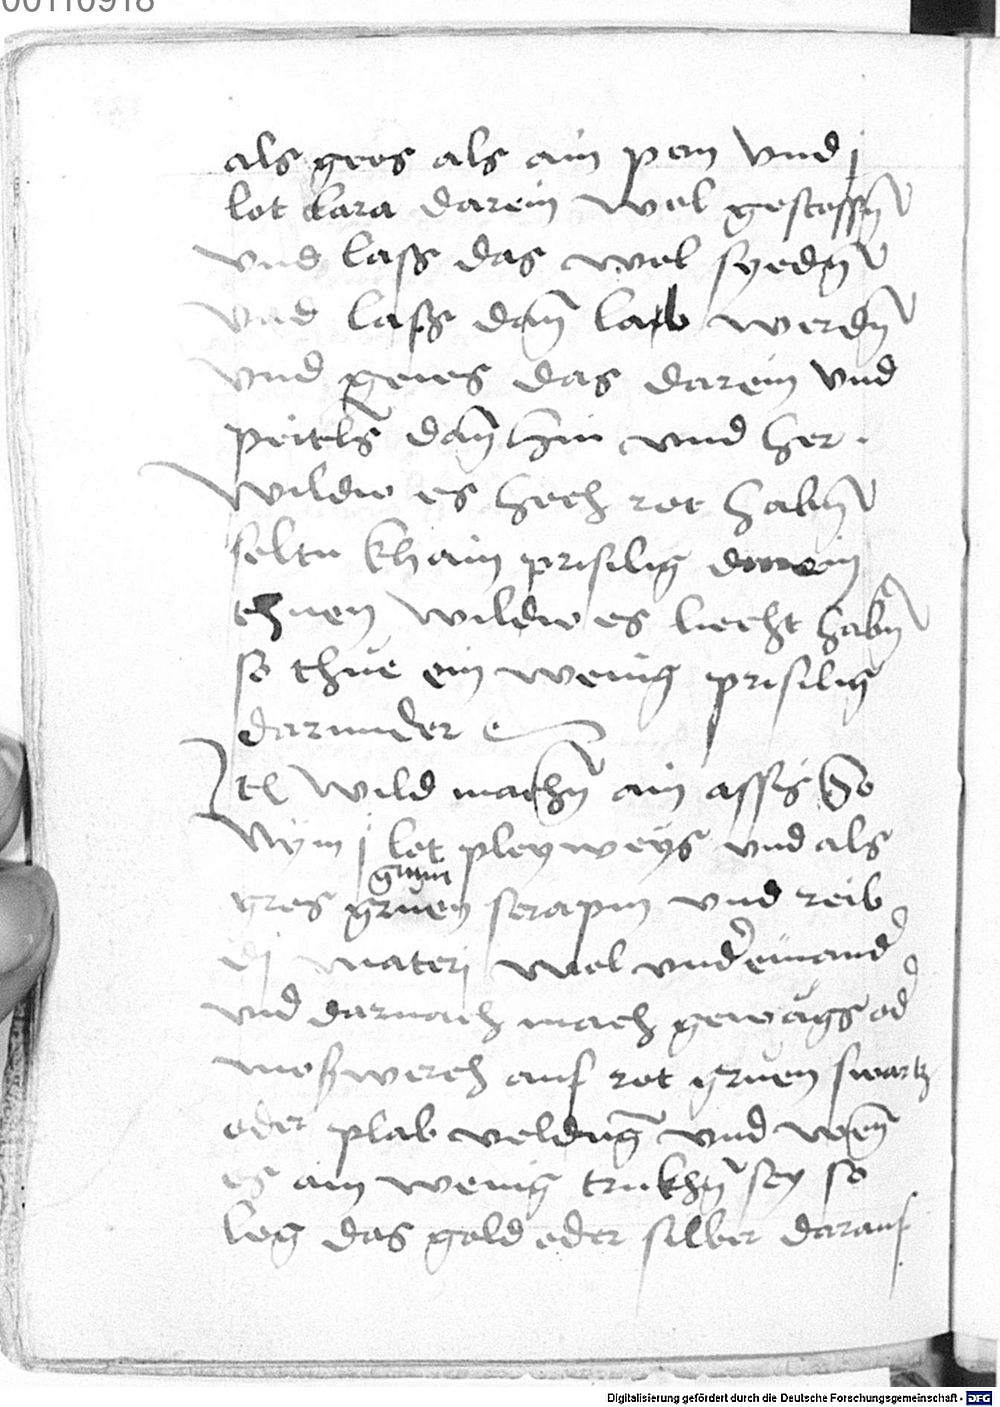 00110918
als gros als ain pon vnd j
lot lara darein wol gestossn
vnd lass das wol syedn
vnd lasß dan lab werdn
vnd geues das darein vnd
peitels dan hin vnd her .
wildw es hoch rot habn
soltu khain prisilig darein
thuen wildw es liecht habn
so thue ein wenig prisilig
darunder
Ite wild machn ain assis So
Nym j lot pleyweys vnd als
gruen
gros gruen serapin vnd reib
dj materj wol vnder einand
vnd darnach mach gewags od
moßwerch auf rot gruen swartz
oder plab veldung vnd wen
es ain wenig trukhn sey so
leg das gold oder silber darauf
Digitalisierung gefördert durch die Deutsche Forschungsgemeinschaft - DFG